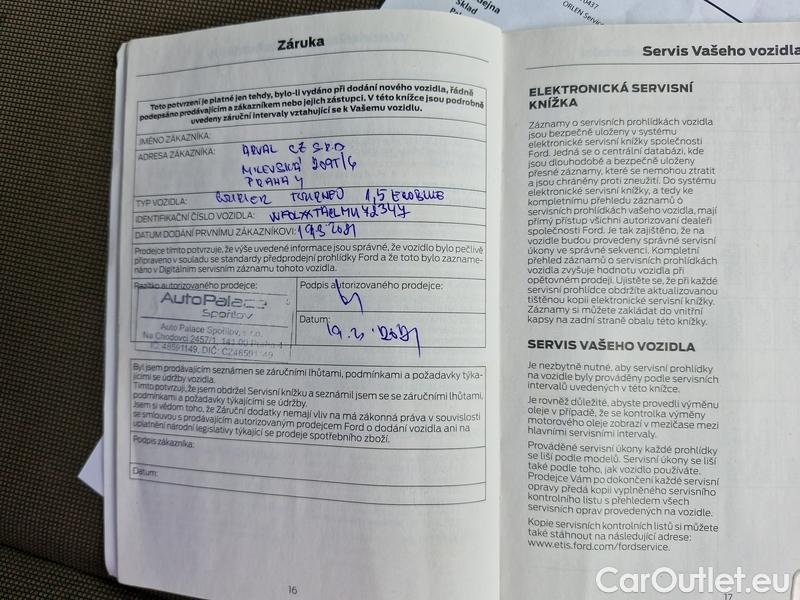 Záruka
Toto potvrzení je platné jen tehdy, bylo-li vydáno při dodání nového vozidla, řádně
podepsáno prodávajícím a zákazníkem nebo jejich zástupci. V této knížce jsou podrobně
uvedeny záruční intervaly vztahující se k Vašemu vozidlu.
JMÉNO ZÁKAZNÍKA:
ADRESA ZÁKAZNÍKA: ARVAL CZ S.R.O
MILEVSKÁ
PRAHA 4
TYP VOZIDLA: COURIER TOURNEO 1,5 ECOBLUE
IDENTIFIKAČNÍ ČÍSLO VOZIDLA:
DATUM DODÁNÍ PRVNÍMU ZÁKAZNÍKOVI: 19.3.2021
Prodejce tímto potvrzuje, že výše uvedené informace jsou správné, že vozidlo bylo pečlivě
připraveno v souladu se standardy předprodejní prohlídky Ford a že toto bylo zazname-
náno v Digitálním servisním záznamu tohoto vozidla.
Razítko autorizovaného prodejce:
AutoPalace
Spořilov
Auto Palace Spořilov, s.r.o.
Na Chodovci 2457/1, 141 00 Praha 4
IČ: 48591149, DIČ: CZ48591149
Podpis autorizovaného prodejce:
Datum: 19.3.2021
Byl jsem prodávajícím seznámen se záručními lhůtami, podmínkami a požadavky týka-
jícími se údržby vozidla.
Tímto potvrzuji, že jsem obdržel Servisní knížku a seznámil jsem se se záručními lhůtami,
podmínkami a požadavky týkajícími se údržby.
Jsem si vědom toho, že Záruční dodatky nemají vliv na má zákonná práva v souvislosti
se smlouvou s prodávajícím autorizovaným prodejcem Ford o dodání vozidla ani na
uplatnění národní legislativy týkající se prodeje spotřebního zboží.
Podpis zákazníka:
Datum:
16
Sklad
ORLEN Servic
Servis Vašeho vozidla
ELEKTRONICKÁ SERVISNÍ
KNÍŽKA
Záznamy o servisních prohlídkách vozidla
jsou bezpečně uloženy v systému
elektronické servisní knížky společnosti
Ford. Jedná se o centrální databázi, kde
jsou dlouhodobě a bezpečně uloženy
přesné záznamy, které se nemohou ztratit
a jsou chráněny proti zneužití. Do systému
elektronické servisní knížky, a tedy ke
kompletnímu přehledu záznamů o
servisních prohlídkách vašeho vozidla, mají
přímý přístup všichni autorizovaní dealeři
společnosti Ford. Je tak zajištěno, že na
vozidle budou provedeny správné servisní
úkony ve správné sekvenci. Kompletní
přehled záznamů o servisních prohlídkách
vozidla zvyšuje hodnotu vozidla při
opětovném prodeji. Ujistěte se, že při každé
servisní prohlídce obdržíte aktualizovanou
tištěnou kopii elektronické servisní knížky.
Záznamy si můžete zakládat do vnitřní
kapsy na zadní straně obalu této knížky.
SERVIS VAŠEHO VOZIDLA
Je nezbytně nutné, aby servisní prohlídky
na vozidle byly prováděny podle servisních
intervalů uvedených v této knížce.
Je rovněž důležité, abyste provedli výměnu
oleje v případě, že se kontrolka výměny
motorového oleje zobrazí v mezičase mezi
hlavními servisními intervaly.
Prováděné servisní úkony každé prohlídky
se liší podle modelů. Servisní úkony se liší
také podle toho, jak vozidlo používáte.
Prodejce Vám po dokončení každé servisní
opravy předá kopii vyplněného servisního
kontrolního listu s přehledem všech
servisních oprav provedených na vozidle.
Kopie servisních kontrolních listů si můžete
také stáhnout na následující adrese:
www.etis.ford.com/fordservice.
17
CarOutlet.eu